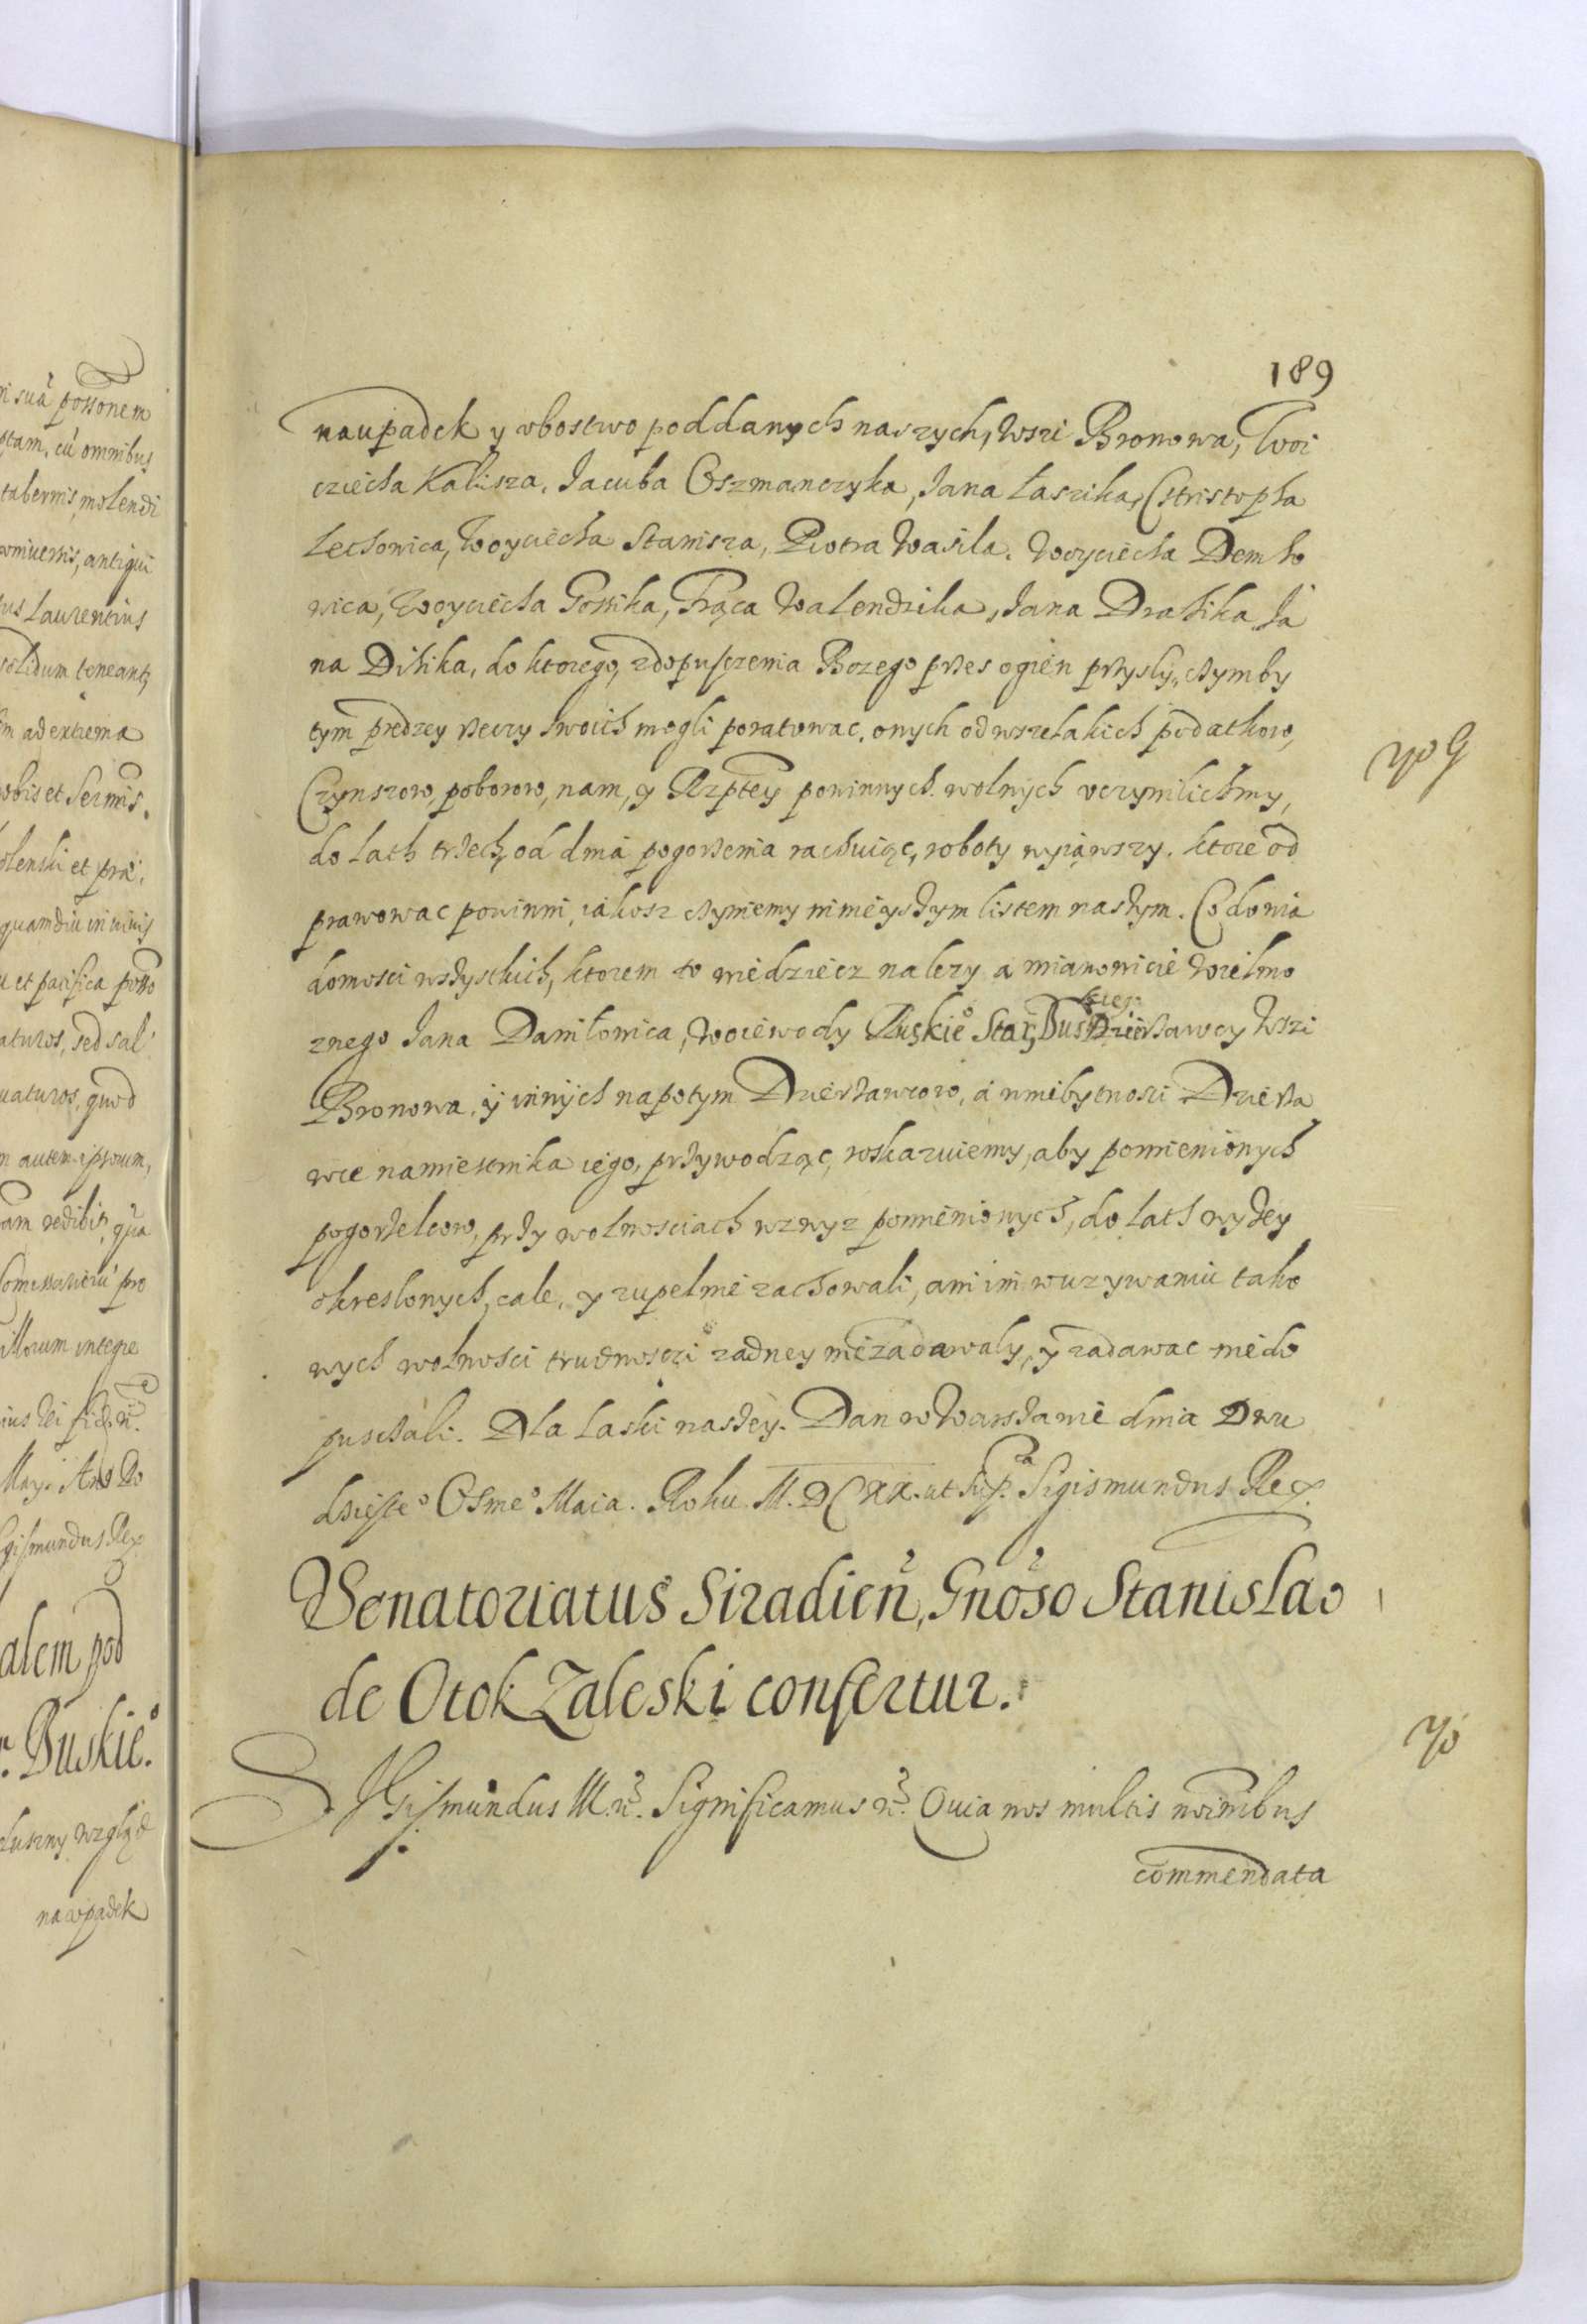 189
na upadek y vbostwo poddanych naszych, wszi Bronowa, Woi
cziecha Kalisza, Jacuba Oszmanczyka, Jana Laszika, Christopha
Lechowica, Woyciecha Stanisza, Piotra Wasila, Woyciecha Demko
wica, Woyciecha Gossika, Frąca Walendzika, Jana Dratika Ja
na Ditika, do ktorego, z dopuszczenia Bozego przes ogien przysly, chym by
tym prędzey rzeczy swoich mogli poratowac, onych od wszelakich podatkow,
Czynszow, poborow, nam, y Rzptey powinnych wolnych vczynilichmy,
do lath trzech, od dnia pogorzenia rachuiąc, roboty wyiąwszy, ktore od
prawowac powinni, iakosz chyniemy ninieyszym listem naszym. Co do wia
domosci wszystkich, ktorem to wiedziecz nalezy a mianowicie wielmo
znego Jana Daniłowica, Woiewody Ruskie° Star: Buskieg° Dzierzawcy wszi
Bronowa, y innych na potym Dzierzawcow, a w niebytnosci Dzierza
wce namiesnika iego, przywodząc, roskazuiemy, aby pomienionych
pogorzelcow, przy wolnosciach wzwyz pomienionych, do lath wyzey
okreslonych, cale, y zupelnie zachowali, ani im w uzywaniu tako
wych wolnosci trudnosczi zadney nie zadawaly, y zadawac nie do
puschali. Dla laski naszey. Dan w Warszawie dnia Dwu
dzieste° Osme° Maia. Roku M.DCXX. ut supra Sigismundus Rex
Venatoriatus Siradien, Gnoso Stanislao
de Otok Zaleski confertur.
Sigismundus III. rc. Significamus rc. Quia nos multis noinibus
commendata
ri suã possonem
ptam, cũ omnibus
tabernis, molendi
universis, antiqui
tus Laurentius
solidum teneant
m ad extrema
obis et Sermis.
quamdiu in vivis
et pacifica posso
aturos, sed sal
uaturos, quod
n autem ipsorum,
illorum integre
Maij. Ano Do
gismundus Rex
alem pod
r. Buskie°
luszny wzgląd
na vpadek